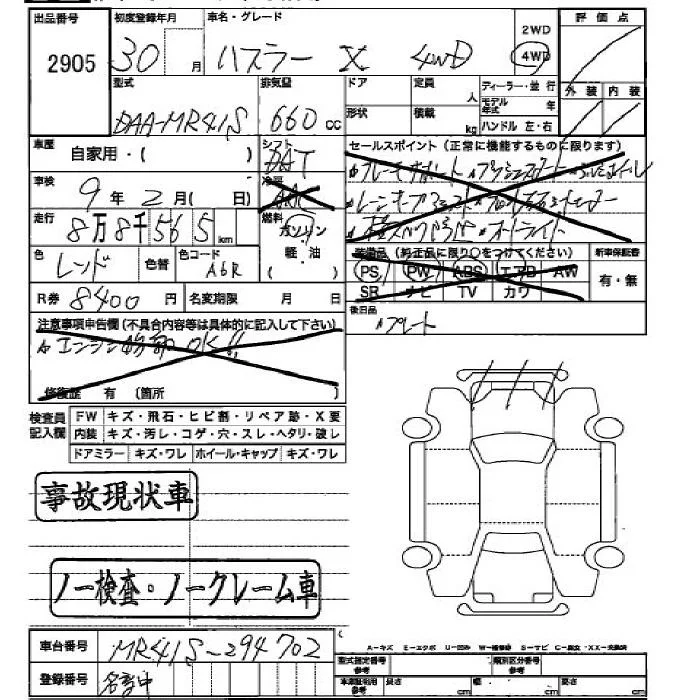 出品番号 初度登録年月 車名・グレード 評価点
2905 30 月 ハスラー X 4WD 2WD 4WD
外装 内装
型式 排気量 ドア 定員 人 ディーラー・並行
DAA-MR41S 660cc 形状 積載 kg モデル年式 年
ハンドル 左・右
車歴 自家用・( ) シフト DAT セールスポイント(正常に機能するものに限ります)
車検 9年2月( 日) 冷房 AAC
走行 8万8千565km 燃料 ガソリン
軽・油
( )
色 レッド 色替 色コード A6R 装備品(純正品に限り○をつけてください) 新車保証書
PS PW ABS エアB AW 有・無
R券 8400円 名変期限 月 日 SR ナビ TV カワ
注意事項申告欄(不具合内容等は具体的に記入して下さい) 後日品
エンジン OK!! プレート
修復歴 有 (箇所 )
検査員記入欄 FW キズ・飛石・ヒビ割・リペア跡・X要
内装 キズ・汚レ・コゲ・穴・スレ・ヘタリ・破レ
ドアミラー キズ・ワレ ホイール・キャップ キズ・ワレ
事故現状車
ノー検査・ノークレーム車
車台番号 MR41S-294702
A-キズ E-エクボ U-凹み W-補修跡 S-サビ C-腐食 XX-交換済
型式指定番号 参考 類別区分番号 参考
登録番号 名変中 車庫証明用 参考 長さ cm 幅 cm 高さ cm